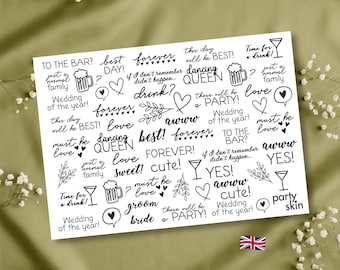 TO THE BAR?
best
DAY!
forever
this day
will be BEST!
Time for
a drink!
just a
normal
family
if I don't remember
didn't happen...
dancing
QUEEN
drink?
Wedding
of the year!
love
there will be
PARTY!
just a
normal
family
this day
will be BEST!
forever
awww
Wedding
of the year!
must be
love
love
dancing
QUEEN
best!
forever
TO THE
BAR?
must be
love
just a
normal
family
love
sweet!
FOREVER!
cute!
if I don't remember
didn't happen...
YES!
awww
YES!
Time for
a drink!
must be
love
awww
cute!
Wedding
of the year!
groom
bride
there will be
PARTY!
Wedding
of the year!
party
skin